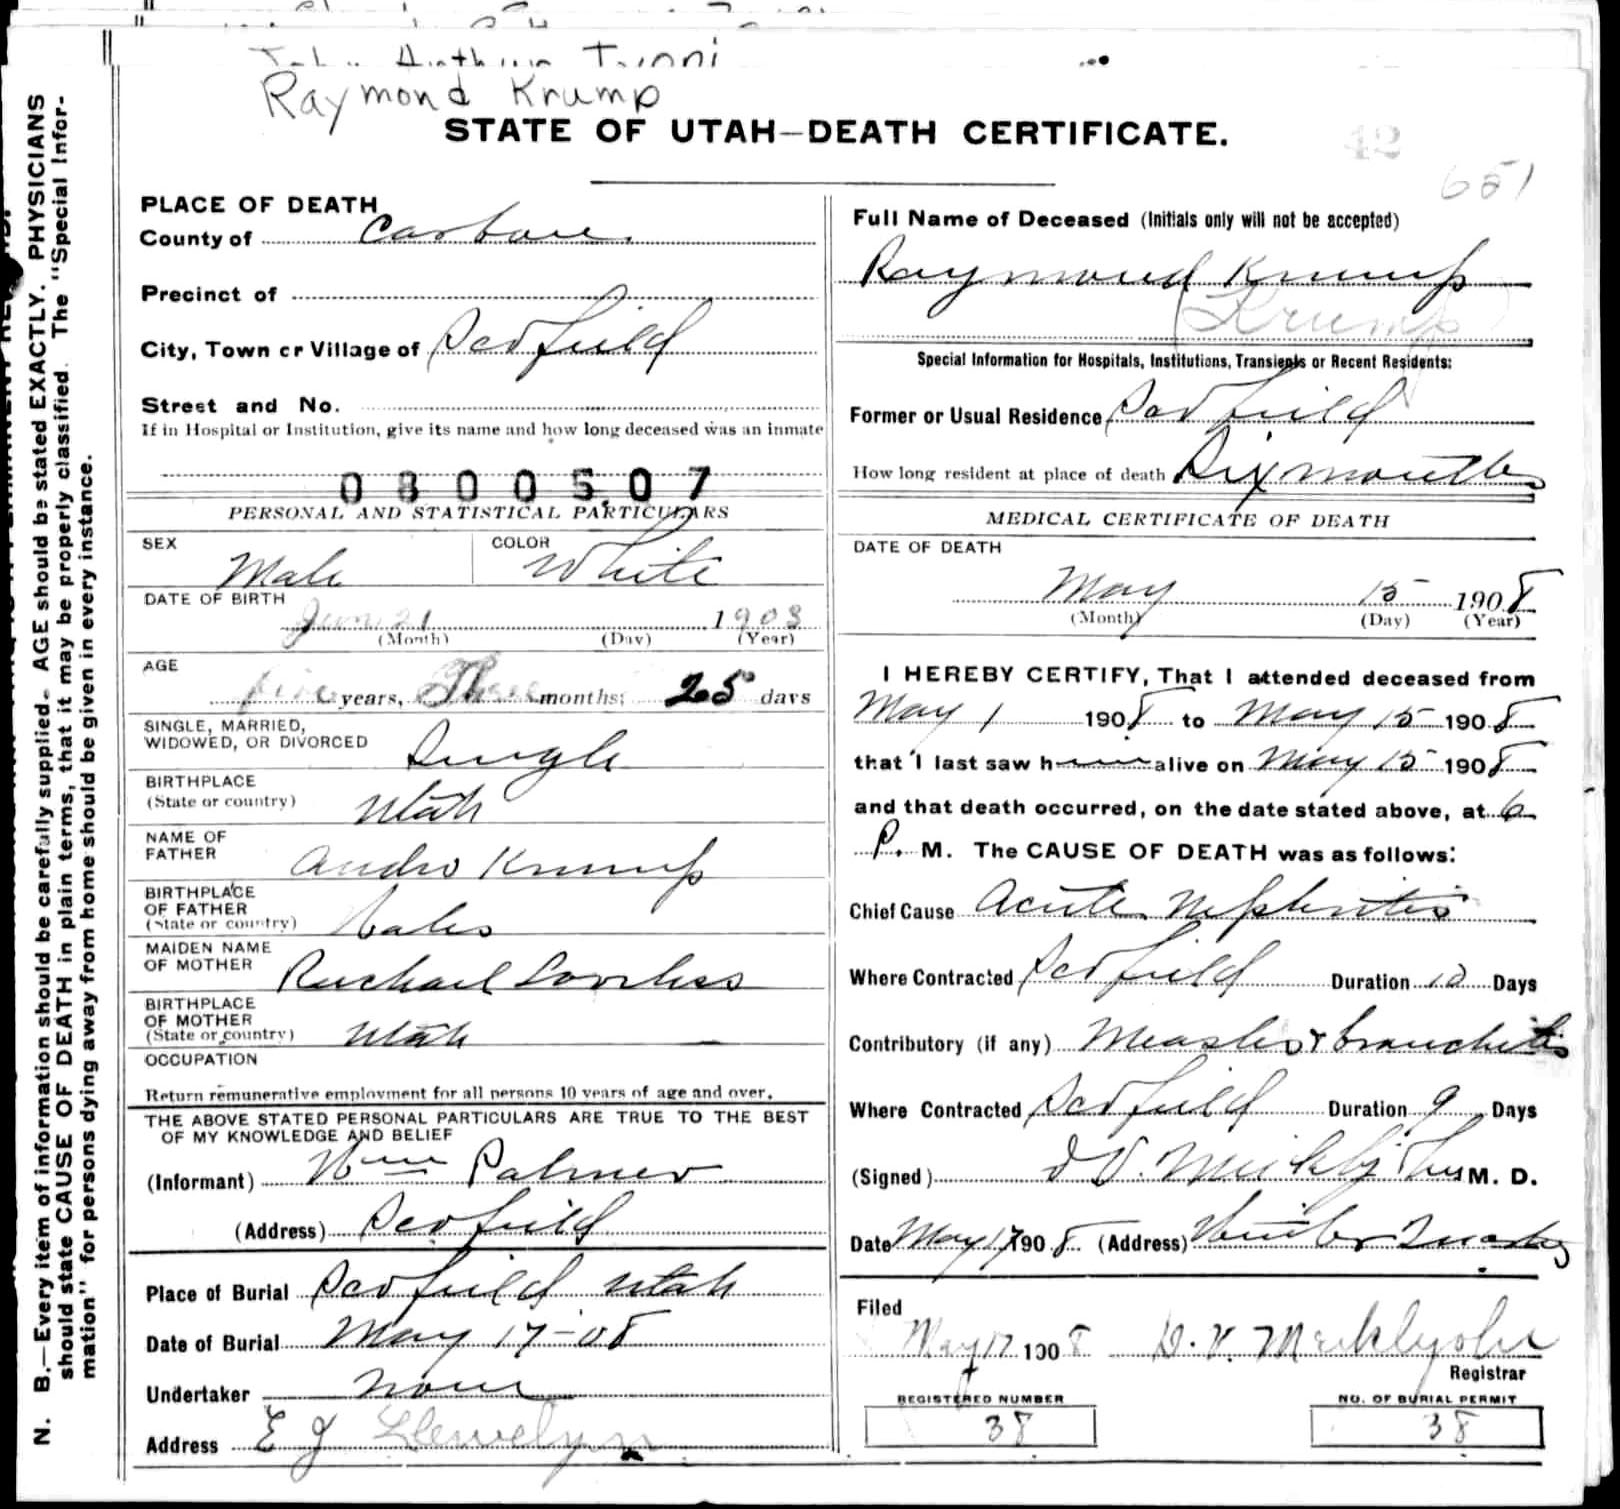 Raymond Krump
STATE OF UTAH—DEATH CERTIFICATE.
42
651
N. B.—Every item of information should be carefully supplied. AGE should be stated EXACTLY. PHYSICIANS
should state CAUSE OF DEATH in plain terms, that it may be properly classified. The "Special Infor-
mation" for persons dying away from home should be given in every instance.
PLACE OF DEATH
County of Carbon
Precinct of
City, Town or Village of Scofield
Street and No.
If in Hospital or Institution, give its name and how long deceased was an inmate
0800507
PERSONAL AND STATISTICAL PARTICULARS
SEX Male
COLOR White
DATE OF BIRTH
21 1903
(Month) (Day) (Year)
AGE
years, months; 25 days
SINGLE, MARRIED,
WIDOWED, OR DIVORCED Single
BIRTHPLACE
(State or country) Utah
NAME OF
FATHER Andro Krump
BIRTHPLACE
OF FATHER
(State or country) Wales
MAIDEN NAME
OF MOTHER Loveless
BIRTHPLACE
OF MOTHER
(State or country) Utah
OCCUPATION
Return remunerative employment for all persons 10 years of age and over.
THE ABOVE STATED PERSONAL PARTICULARS ARE TRUE TO THE BEST
OF MY KNOWLEDGE AND BELIEF
(Informant) Wm Palmer
(Address) Scofield
Place of Burial Scofield Utah
Date of Burial May 17-08
Undertaker None
Address E J Llewelyn
Full Name of Deceased (Initials only will not be accepted)
Raymond Krump
(Krump)
Special Information for Hospitals, Institutions, Transients or Recent Residents:
Former or Usual Residence Scofield
How long resident at place of death Six months
MEDICAL CERTIFICATE OF DEATH
DATE OF DEATH
May 15 1908
(Month) (Day) (Year)
I HEREBY CERTIFY, That I attended deceased from
May 1 1908 to May 15 1908
that I last saw him alive on May 15 1908
and that death occurred, on the date stated above, at 6
P. M. The CAUSE OF DEATH was as follows:
Chief Cause Acute Nephritis
Where Contracted Scofield Duration 10 Days
Contributory (if any) Measles & bronchitis
Where Contracted Scofield Duration 9 Days
(Signed) M. D.
Date May 17 1908 (Address) Winter Quarters
Filed
May 17 1908 D. V. Meiklejohn
Registrar
REGISTERED NUMBER
38
NO. OF BURIAL PERMIT
38